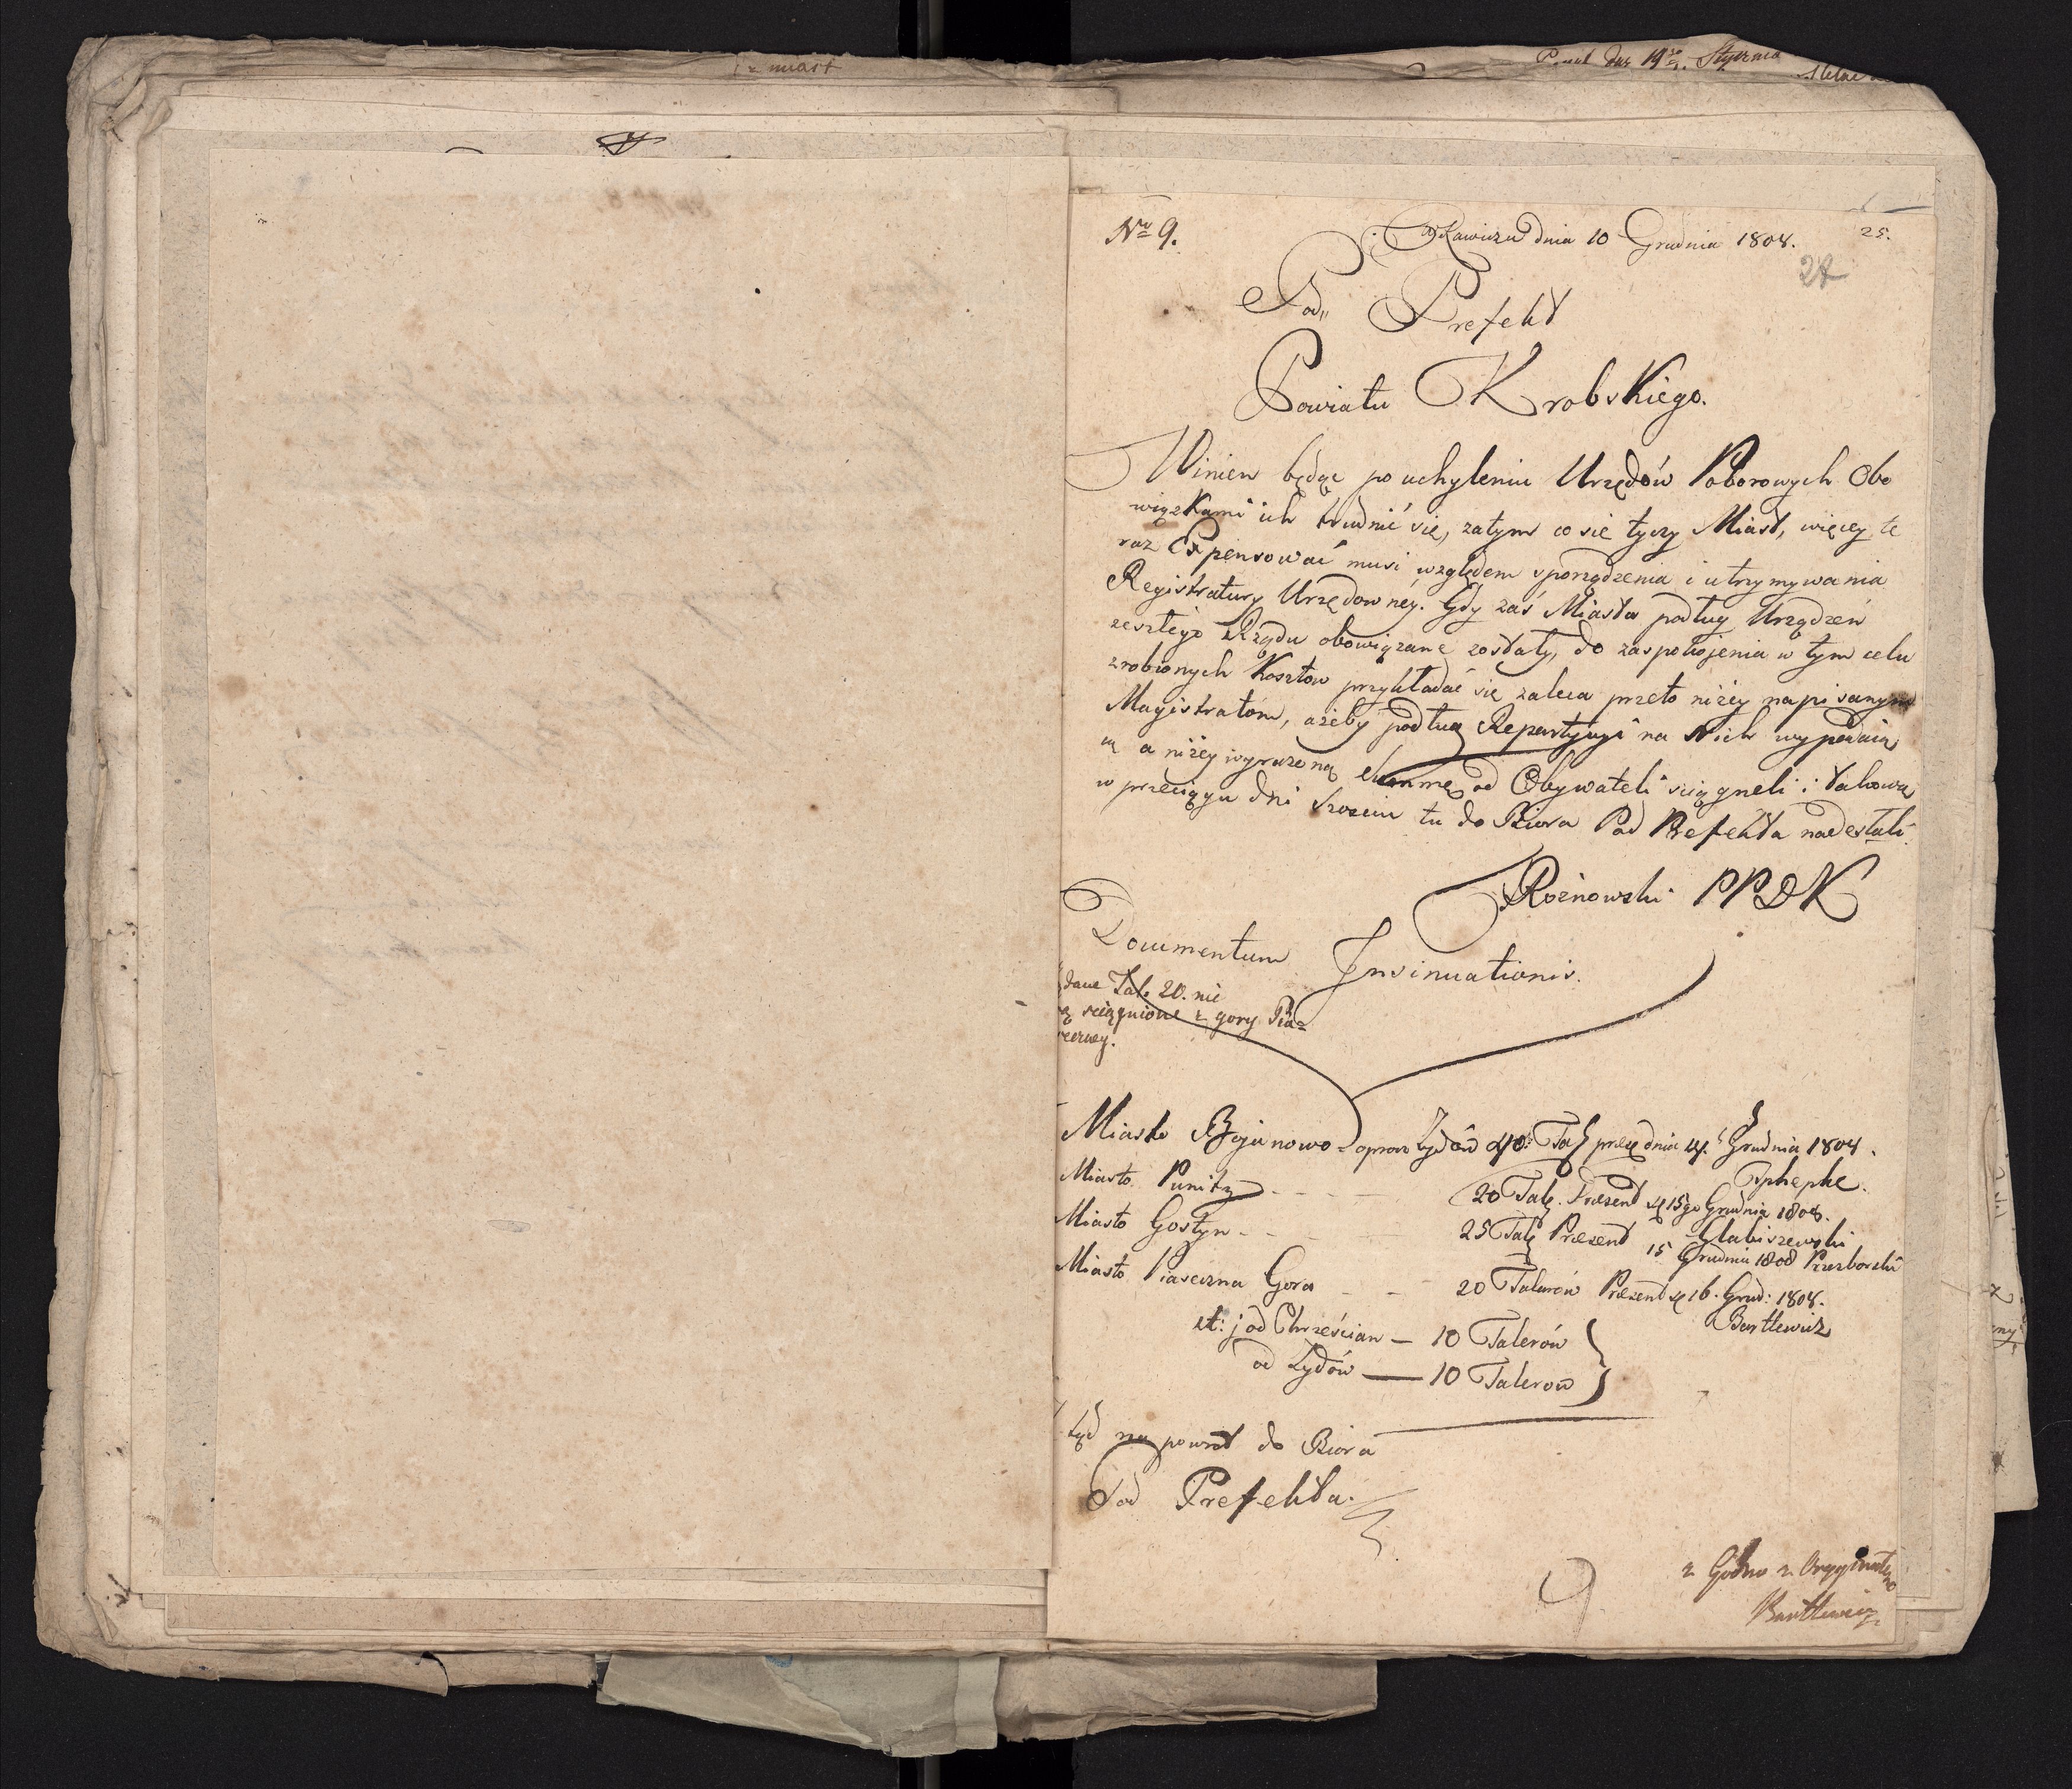 z miast
Nro 9.
w Rawiczu dnia 10 Grudnia 1808.
25.
Pod Prefekt
Powiatu Krobskiego.
Winien będąc po uchyleniu Urzędów Poborowych Obo
wiązkami ich trudnić się, zatym co się tyczy Miast, więcey te
raz Expensować musi względem sporządzenia i utrzymywania
Registratury Urzędowney. Gdy zaś Miasta podług Urządzeń
zeszłego Rządu obowiązane zostały, do zaspokojenia w tym celu
zrobionych Kosztow przykładać się zaleca przeto niżey napisanym
Magistratóm, ażeby podług Repartycyi na Nich wypadaią
cą a niżey wyrażoną Summę od Obywateli ściągneli i takową
w przeciągu dni trzech tu do Biora Pod Prefekta nadesłali.
Rożnowski PPDK
Documentum Insinuationis.
dane Tal. 20. nie
są ściągnione z gory Pia=
seczney.
Miasto Bojanowo oprocz Żydów 40 Tal prez dnia 14 Grudnia 1808.
Miasto Punitz - - - - 20 Tal. Prezent d 15go Grudnia 1808.
Glabiszewski
Miasto Gostyn - - - 25 Tal Prezent 15 Grudnia 1808 Przeborski
Miasto Piaseczna Gora - - 20 Talarów Prezent d 16. Grud: 1808.
Bartlewicz
et: j od Chrześcian — 10 Talerów
od Żydów — 10 Talerow
na powrot do Biora
Pod Prefekta.
9
z Godno z Oryginałem
Bartlewicz